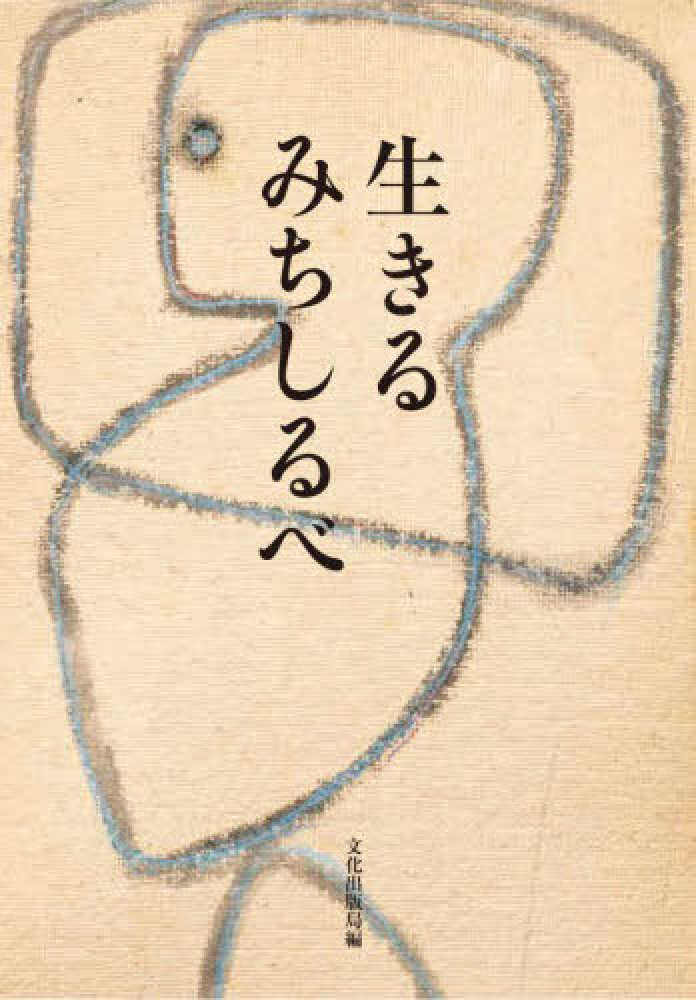 生きる
みちしるべ
文化出版局編